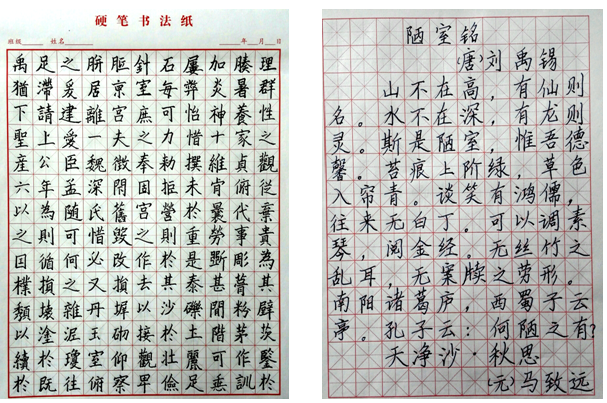 硬笔书法纸
班级 姓名 年 月 日
禹足之胼胝針石屢加腠理
猶滯爰居京室每弊炎暑群
下請建離宮庶可怡神養性
聖上愛一夫之力惜十家之
產公臣魏徵奉勅撰維貞觀
六年孟深閉固拒未肯俯從
以為隨氏舊宮營於曩代棄
之則可惜毀之則重勞事貴
因循何必改作於是斲彫為
樸損之又損去其泰甚葺其
頹壞雜丹墀以沙礫間粉壁
以塗泥玉砌接於土階茅茨
續於瓊室仰觀壯麗可作鑒
於既往俯察卑儉足垂訓於
陋室铭
(唐)刘禹锡
山不在高，有仙则
名。水不在深，有龙则
灵。斯是陋室，惟吾德
馨。苔痕上阶绿，草色
入帘青。谈笑有鸿儒，
往来无白丁。可以调素
琴，阅金经。无丝竹之
乱耳，无案牍之劳形。
南阳诸葛庐，西蜀子云
亭。孔子云：何陋之有？
天净沙·秋思
(元)马致远